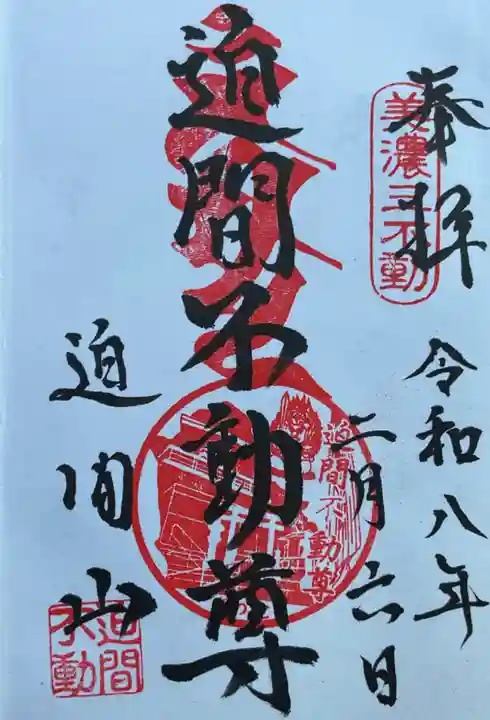 奉拝
美濃三不動
令和八年
二月六日
迫間不動尊
迫間不動尊
迫間山
迫間
不動